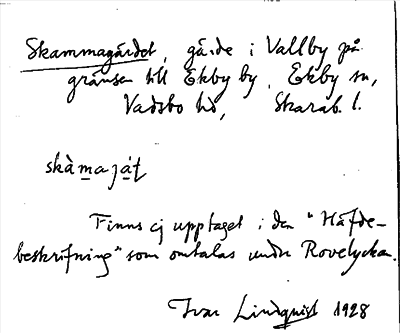 Skammagärdet, gärde i Vallby på
gränsen till Ekby by, Ekby sn,
Vadsbo hd, Skarab. l.
skàmajáṭ
Finns ej upptaget i den "Häfde-
beskrifning" som omtalas under Rovelyckan.
Ivar Lindquist 1928